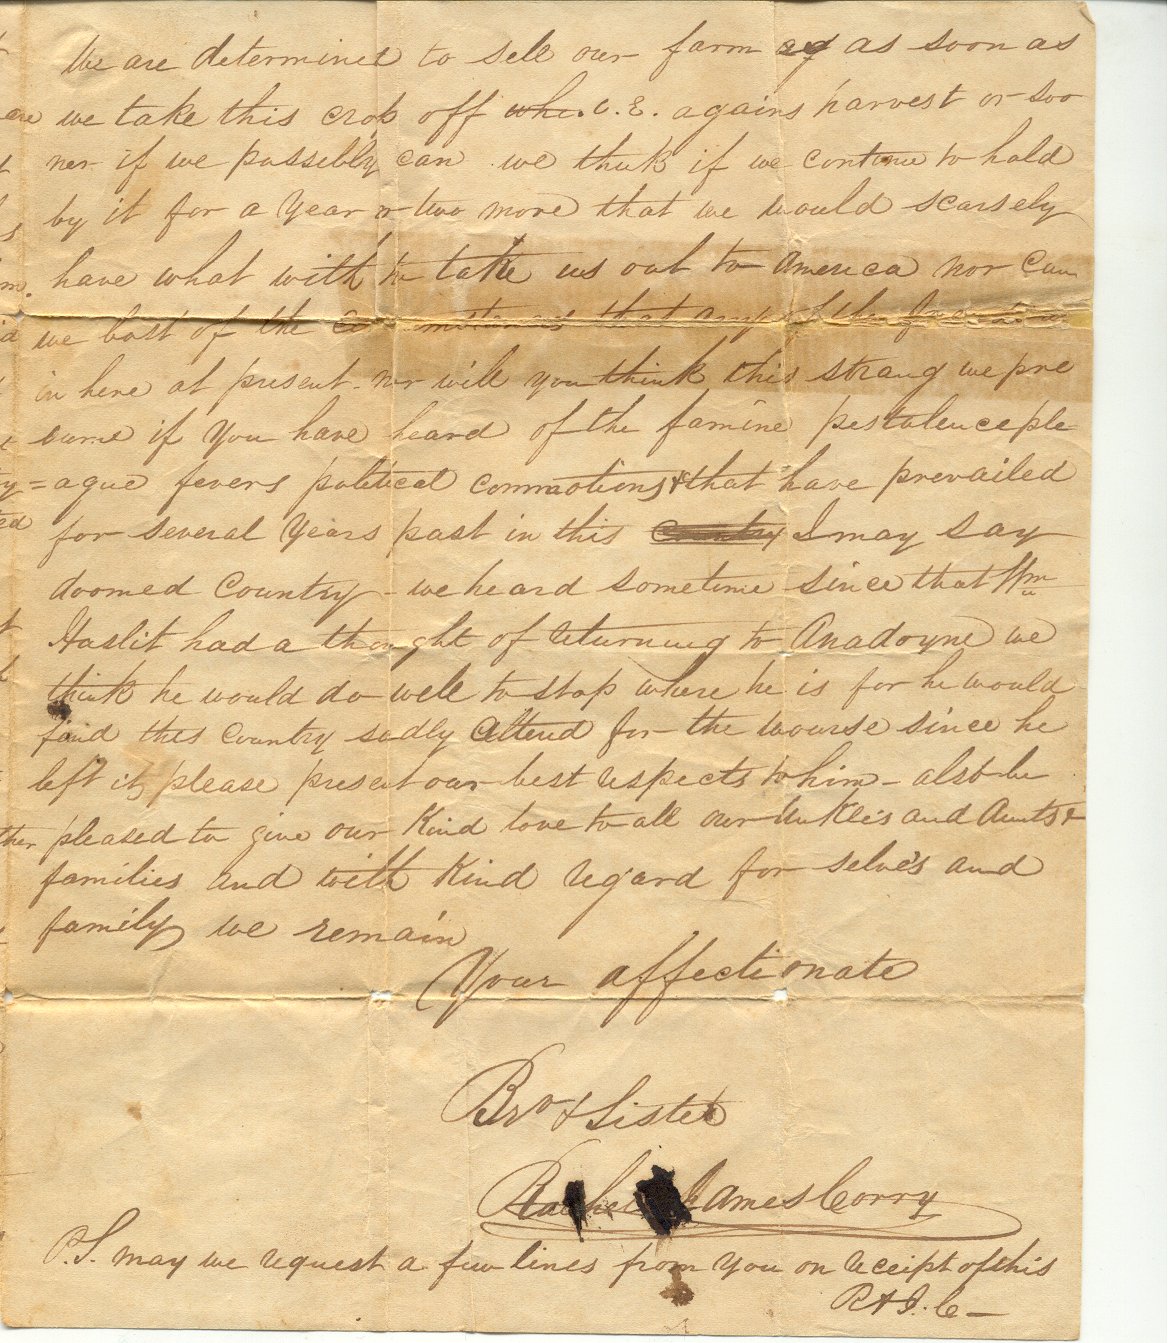 We are determined to sell our farm as soon as
we take this crop off whe. I.E. agains harvest or soo
ner if we possebly can we think if we contenue to hold
by it for a Year or two more that we would scarsely
have what with to take us out to America nor can
we bost of the that any of the
in here at present - nor will you think this strang we pre
sume if You have heard of the famine pestalence ple
= ague fevers political commotions & that have prevailed
for several Years past in this country I may say
doomed Country - we heard sometime since that Wm
Haslit had a thought of returning to Anadoyne we
think he would do well to stop where he is for he would
find this Country sadly altered for the wourse since he
left it, please present our best respects to him - also be
pleased to give our Kind love to all our Unkle's and Aunts &
families and with Kind regard for selve's and
family we remain
Your affectionate
Bro & Sister
Rachel James Corry
P.S. may we request a few lines from You on receipt of this
R & J. C -